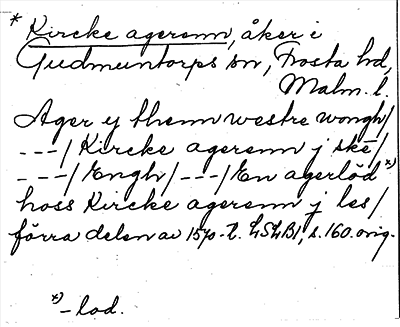 * Kircke ageren, åker i
Gudmuntorps sn, Frosta hd,
Malm. l.
Ager y them westre wongh/
---/ Kircke ageren j skē/
---/ Engh/ ---/ En agerlöd *)
hoss Kircke ageren j les/
förra delen av 1570-t. LSLB1, s. 160. orig.
*) -lod.